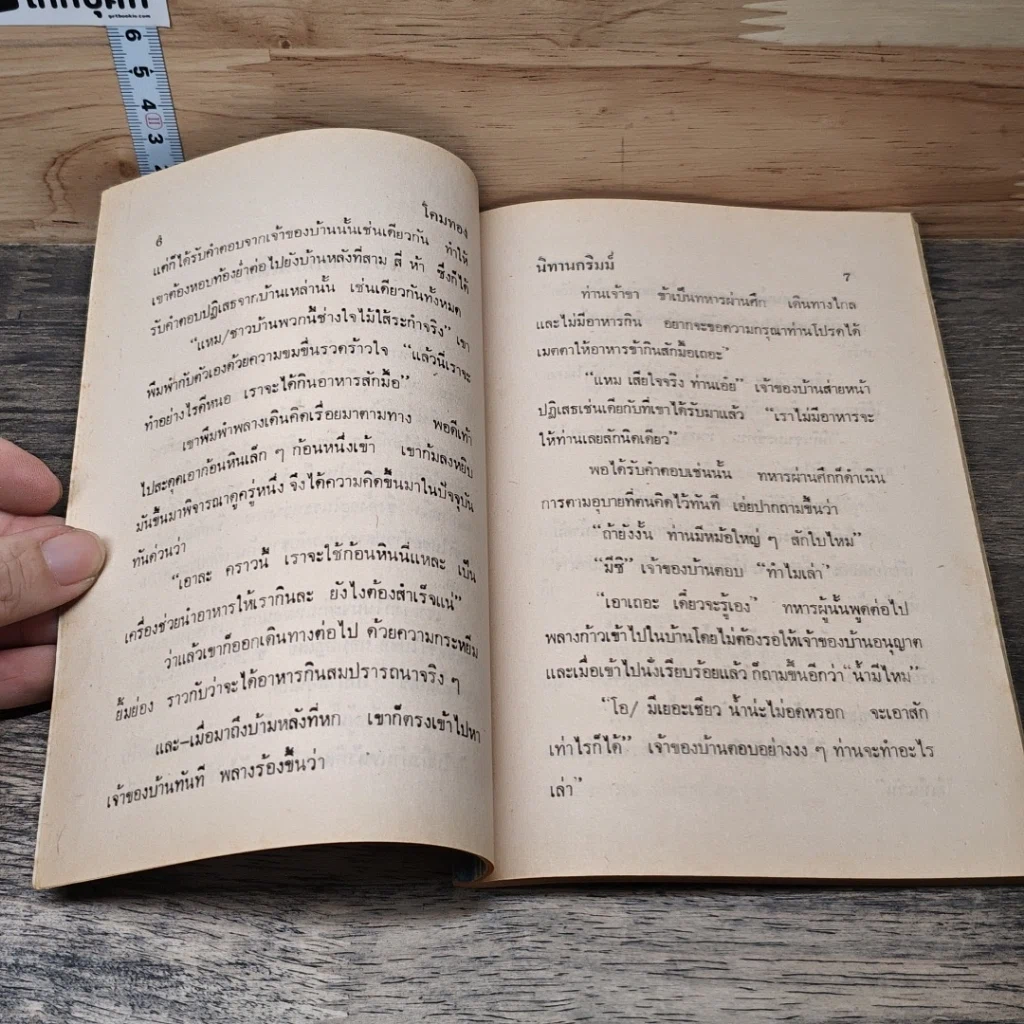 getbookie.com
6
5
4
11
3
2
๖
โคมทอง
แต่ก็ได้รับคำตอบจากเจ้าของบ้านนั้นเช่นเดียวกัน ทำให้
เขาต้องหอบท้องย่ำต่อไปยังบ้านหลังที่สาม สี่ ห้า ซึ่งก็ได้
รับคำตอบปฏิเสธจากบ้านเหล่านั้น เช่นเดียวกันทั้งหมด
"แหม/ชาวบ้านพวกนี้ช่างใจไม้ไส้ระกำจริง" เขา
พึมพำกับตัวเองด้วยความขมขื่นรวดร้าวใจ "แล้วนี่เราจะ
ทำอย่างไรดีหนอ เราจะได้กินอาหารสักมื้อ"
เขาพึมพำพลางเดินคิดเรื่อยมาตามทาง พอดีเท้า
ไปสะดุดเอาก้อนหินเล็ก ๆ ก้อนหนึ่งเข้า เขาก้มลงหยิบ
มันขึ้นมาพิจารณาดูครู่หนึ่ง จึงได้ความคิดขึ้นมาในปัจจุบัน
ทันด่วนว่า
"เอาละ คราวนี้ เราจะใช้ก้อนหินนี่แหละ เป็น
เครื่องช่วยนำอาหารให้เรากินละ ยังไงต้องสำเร็จแน่"
ว่าแล้วเขาก็ออกเดินทางต่อไป ด้วยความกระหยิ่ม
ยิ้มย่อง ราวกับว่าจะได้อาหารกินสมปรารถนาจริง ๆ
และ-เมื่อมาถึงบ้ามหลังที่หก เขาก็ตรงเข้าไปหา
เจ้าของบ้านทันที พลางร้องขึ้นว่า
นิทานกริมม์
7
ท่านเจ้าขา ข้าเป็นทหารผ่านศึก เดินทางไกล
และไม่มีอาหารกิน อยากจะขอความกรุณาท่านโปรดได้
เมตตาให้อาหารข้ากินสักมื้อเถอะ"
"แหม เสียใจจริง ท่านเอ๋ย" เจ้าของบ้านส่ายหน้า
ปฏิเสธเช่นเดียกับที่เขาได้รับมาแล้ว "เราไม่มีอาหารจะ
ให้ท่านเลยสักนิดเดียว"
พอได้รับคำตอบเช่นนั้น ทหารผ่านศึกก็ดำเนิน
การตามอุบายที่ตนคิดไว้ทันที เอ่ยปากถามขึ้นว่า
"ถ้ายังงั้น ท่านมีหม้อใหญ่ ๆ สักใบไหม"
"มีซิ" เจ้าของบ้านตอบ "ทำไมเล่า"
"เอาเถอะ เดี๋ยวจะรู้เอง" ทหารผู้นั้นพูดต่อไป
พลางก้าวเข้าไปในบ้านโดยไม่ต้องรอให้เจ้าของบ้านอนุญาต
และเมื่อเข้าไปนั่งเรียบร้อยแล้ว ก็ถามขึ้นอีกว่า "น้ำมีไหม"
"โอ/ มีเยอะเชียว น้ำน่ะไม่อดหรอก จะเอาสัก
เท่าไรก็ได้" เจ้าของบ้านตอบอย่างงง ๆ ท่านจะทำอะไร
เล่า"